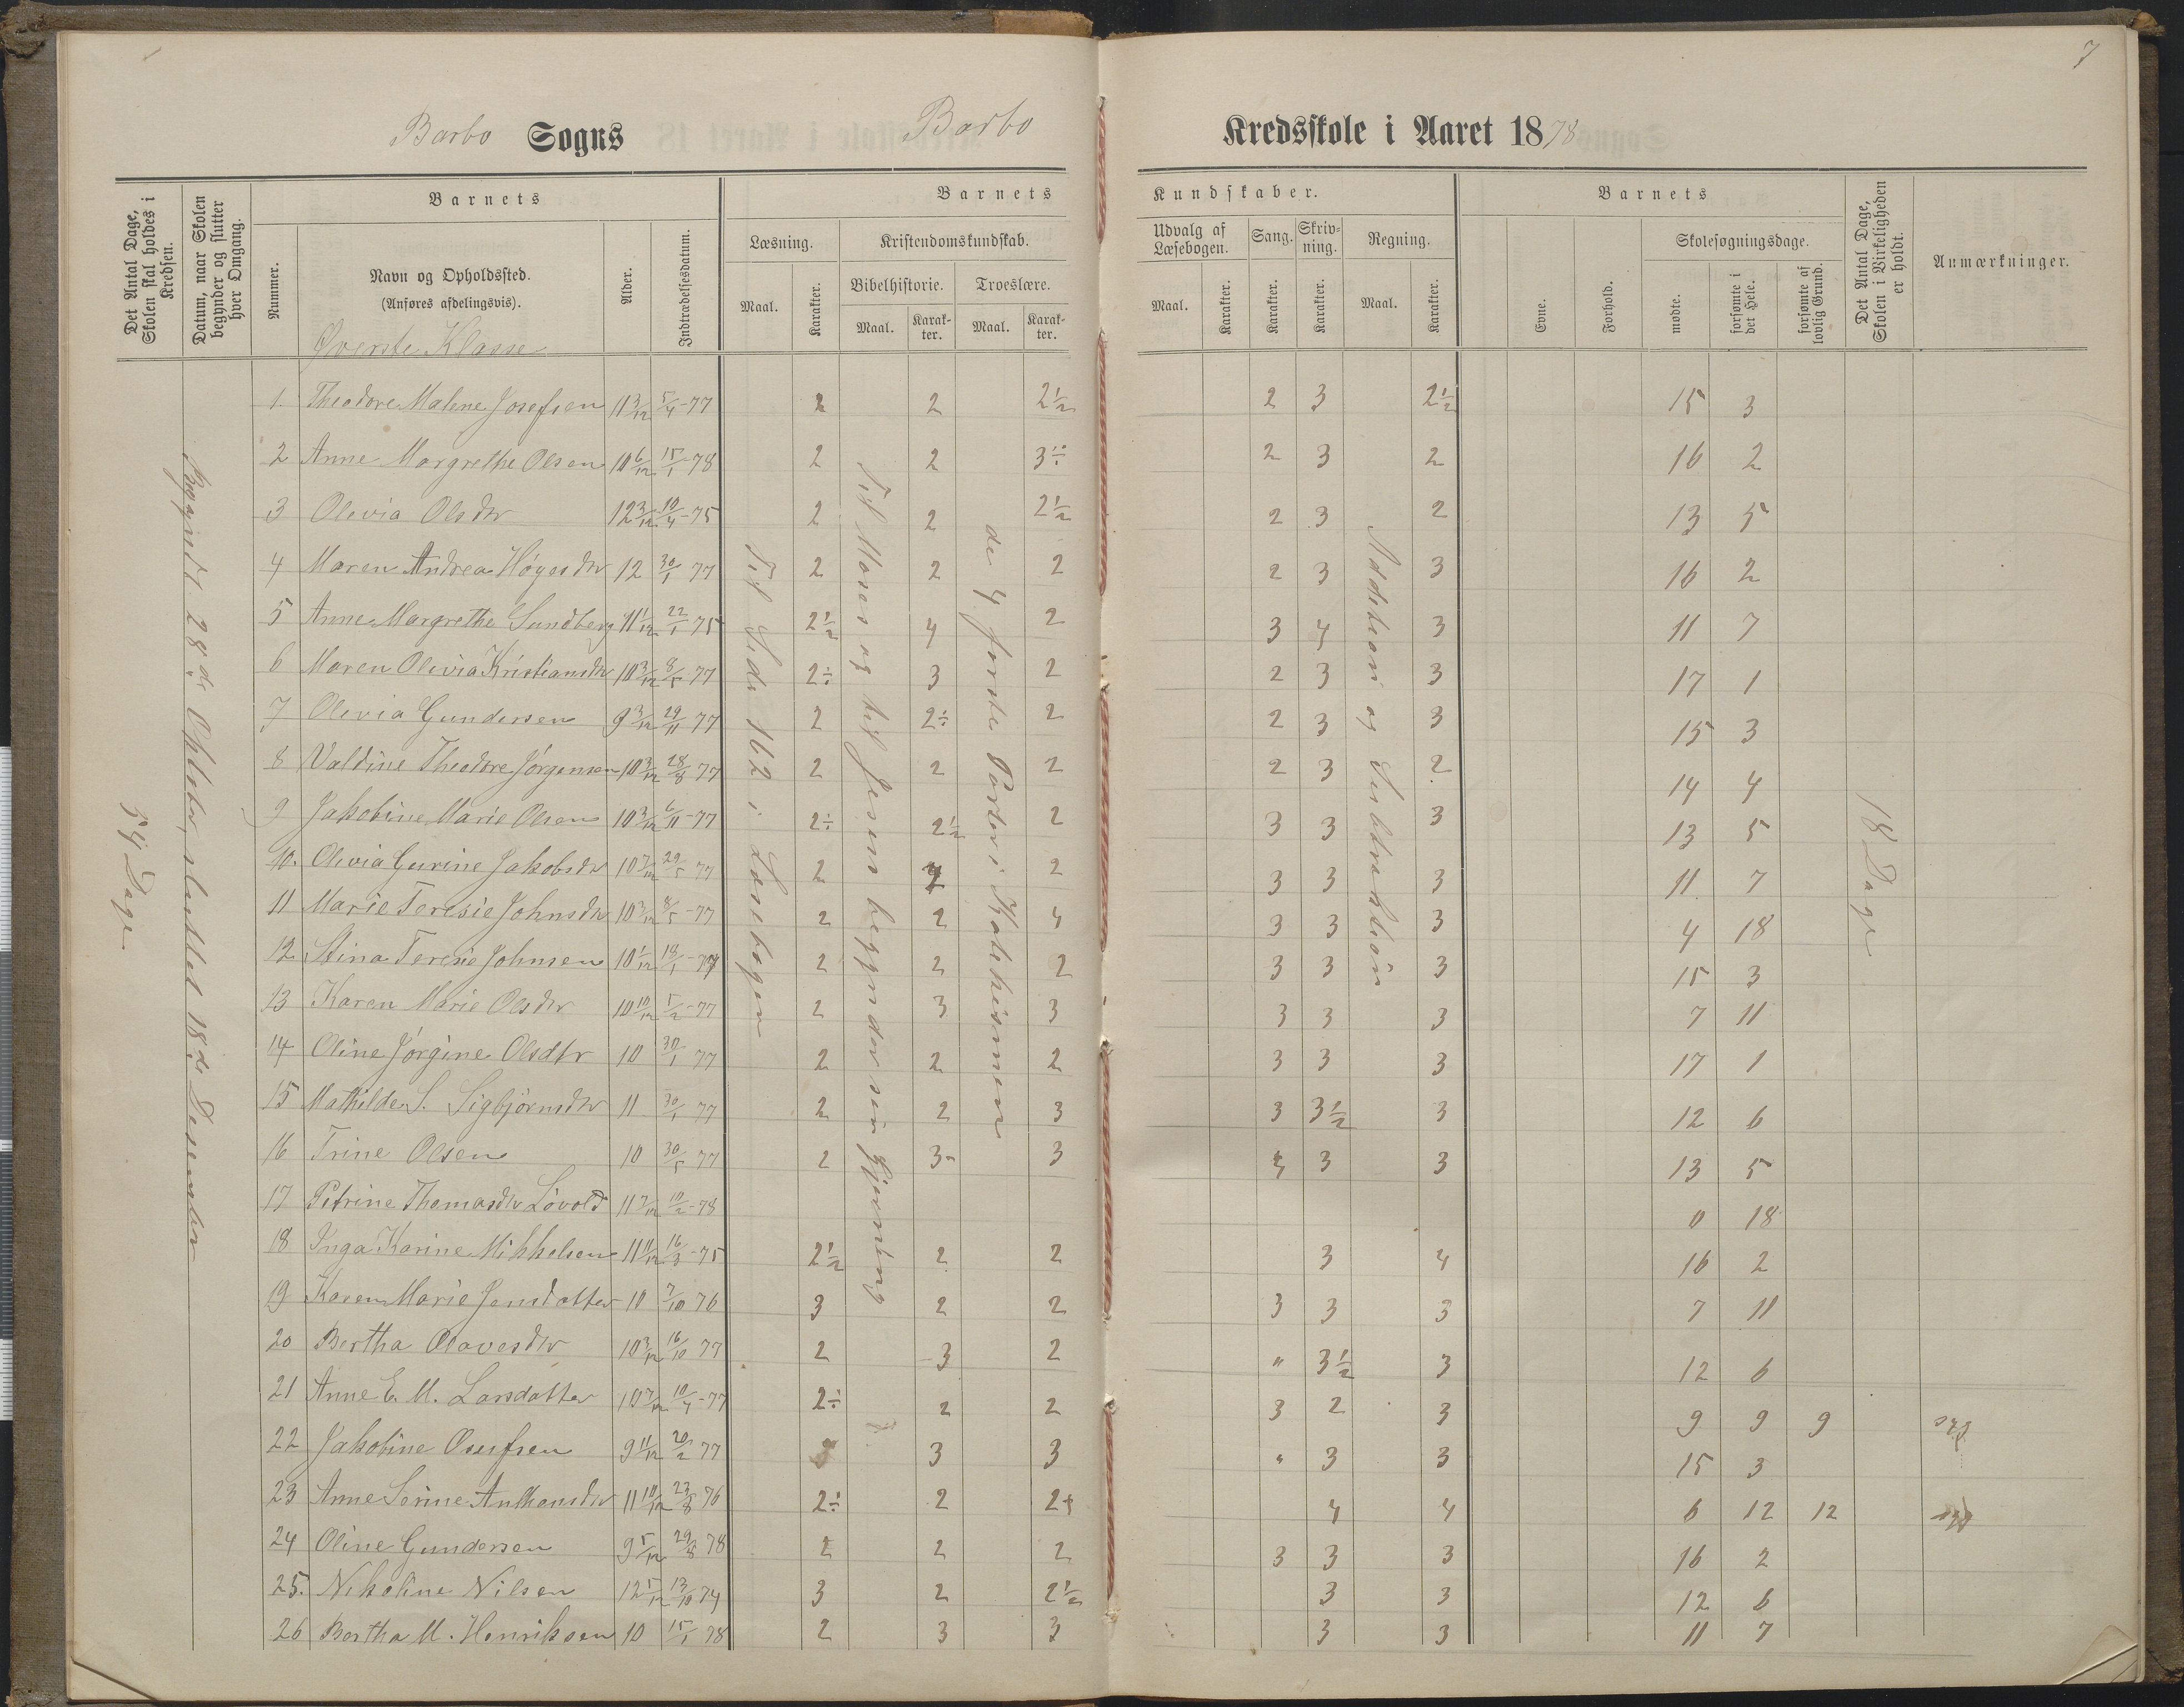 7
Barbo Sogns Barbo Kredsskole i Aaret 1878
Det Antal Dage, Skolen skal holdes i Kredsen.
Datum, naar Skolen begynder og slutter hver Omgang.
Barnets
Nummer.
Navn og Opholdssted.
(Anføres afdelingsvis).
Øverste Klasse
Alder.
Indtrædelsesdatum.
Barnets Kundskaber.
Læsning.
Maal.
Karakter.
Kristendomskundskab.
Bibelhistorie.
Maal.
Karakter.
Troeslære.
Maal.
Karakter.
Udvalg af Læsebogen.
Maal.
Karakter.
Sang.
Karakter.
Skrivning.
Karakter.
Regning.
Maal.
Karakter.
Barnets
Evne.
Forhold.
Skolesøgningsdage.
mødte.
forsømte i det Hele.
forsømte af lovlig Grund.
Det Antal Dage, Skolen i Virkeligheden er holdt.
Anmærkninger.
54 Dage
Begyndt 28de Oktober, sluttet 18de Desember
Til Side 162 i Læsebogen
Til Moses og til Jesus begynder sin Gjerning
de 4 første Parter i Katekismen
Addition og Subtraktion
18 Dage
1. Theodore Malene Josefsen 11 3/12 5/4-77 2 2 2½ 2 3 2½ 15 3
2 Anne Margrethe Olsen 10 6/12 15/1-78 2 2 3÷ 2 3 2 16 2
3 Olevia Olsdtr 12 3/12 10/4-75 2 2 2½ 2 3 2 13 5
4 Maren Andrea Høyesdtr 12 30/1 77 2 2 2 2 3 3 16 2
5 Anne Margrethe Sundberg 11 1/12 22/1-75 2½ 4 2 3 4 3 11 7
6 Maren Olivia Kristiansdtr 10 3/12 8/5-77 2÷ 3 2 2 3 3 17 1
7 Olevia Gundersen 9 3/12 29/11 77 2 2÷ 2 2 3 3 15 3
8 Valdine Theodore Jørgensen 10 3/12 28/8 77 2 2 2 2 3 2 14 4
9 Jakobine Marie Olsen 10 3/12 6/11-77 2÷ 2½ 2 3 3 3 13 5
10. Olevia Gurine Jakobsdtr 10 7/12 29/5 77 2 2 3 3 3 11 7
11 Marie Teresie Johnsdtr 10 3/12 8/5-77 2 2 4 3 3 3 4 18
12 Stina Teresie Johnsen 10 1/12 18/1-77 2 2 2 3 3 3 15 3
13 Karen Marie Olsdtr 10 10/12 5/2-77 2 3 3 3 3 3 7 11
14 Oline Jørgine Olsdtr 10 30/1 77 2 2 2 3 3 3 17 1
15 Mathilde S. Sigbjørnsdtr 11 30/1 77 2 2 3 3 3½ 3 12 6
16 Trine Olsen 10 30/5 77 2 3- 3 4 3 3 13 5
17 Petrine Thomasdtr Løvold 11 7/12 10/2-78 0 18
18 Inga Karine Mikkelsen 11 11/12 16/3-75 2½ 2 2 3 4 16 2
19 Karen Marie Jensdatter 10 7/10 76 3 2 2 3 3 3 7 11
20 Bertha Olavesdtr 10 3/12 16/10 77 2 3 2 " 3½ 3 12 6
21 Anne E. M. Larsdatter 10 7/12 10/4-77 2÷ 2 2 3 2 3 9 9 9
22 Jakobine Osufsen 9 11/12 20/2 77 3 3 " 3 3 15 3
23 Anne Serine Anthonsdtr 11 10/12 23/8 76 2÷ 2 2+ 4 4 6 12 12
24 Oline Gundersen 9 5/12 29/8 78 2 2 2 3 3 3 16 2
25. Nikoline Nilsen 12 5/12 13/10 74 3 2 2½ 3 3 12 6
26 Bertha M. Henriksen 10 15/1 78 2 3 3 3 3 11 7